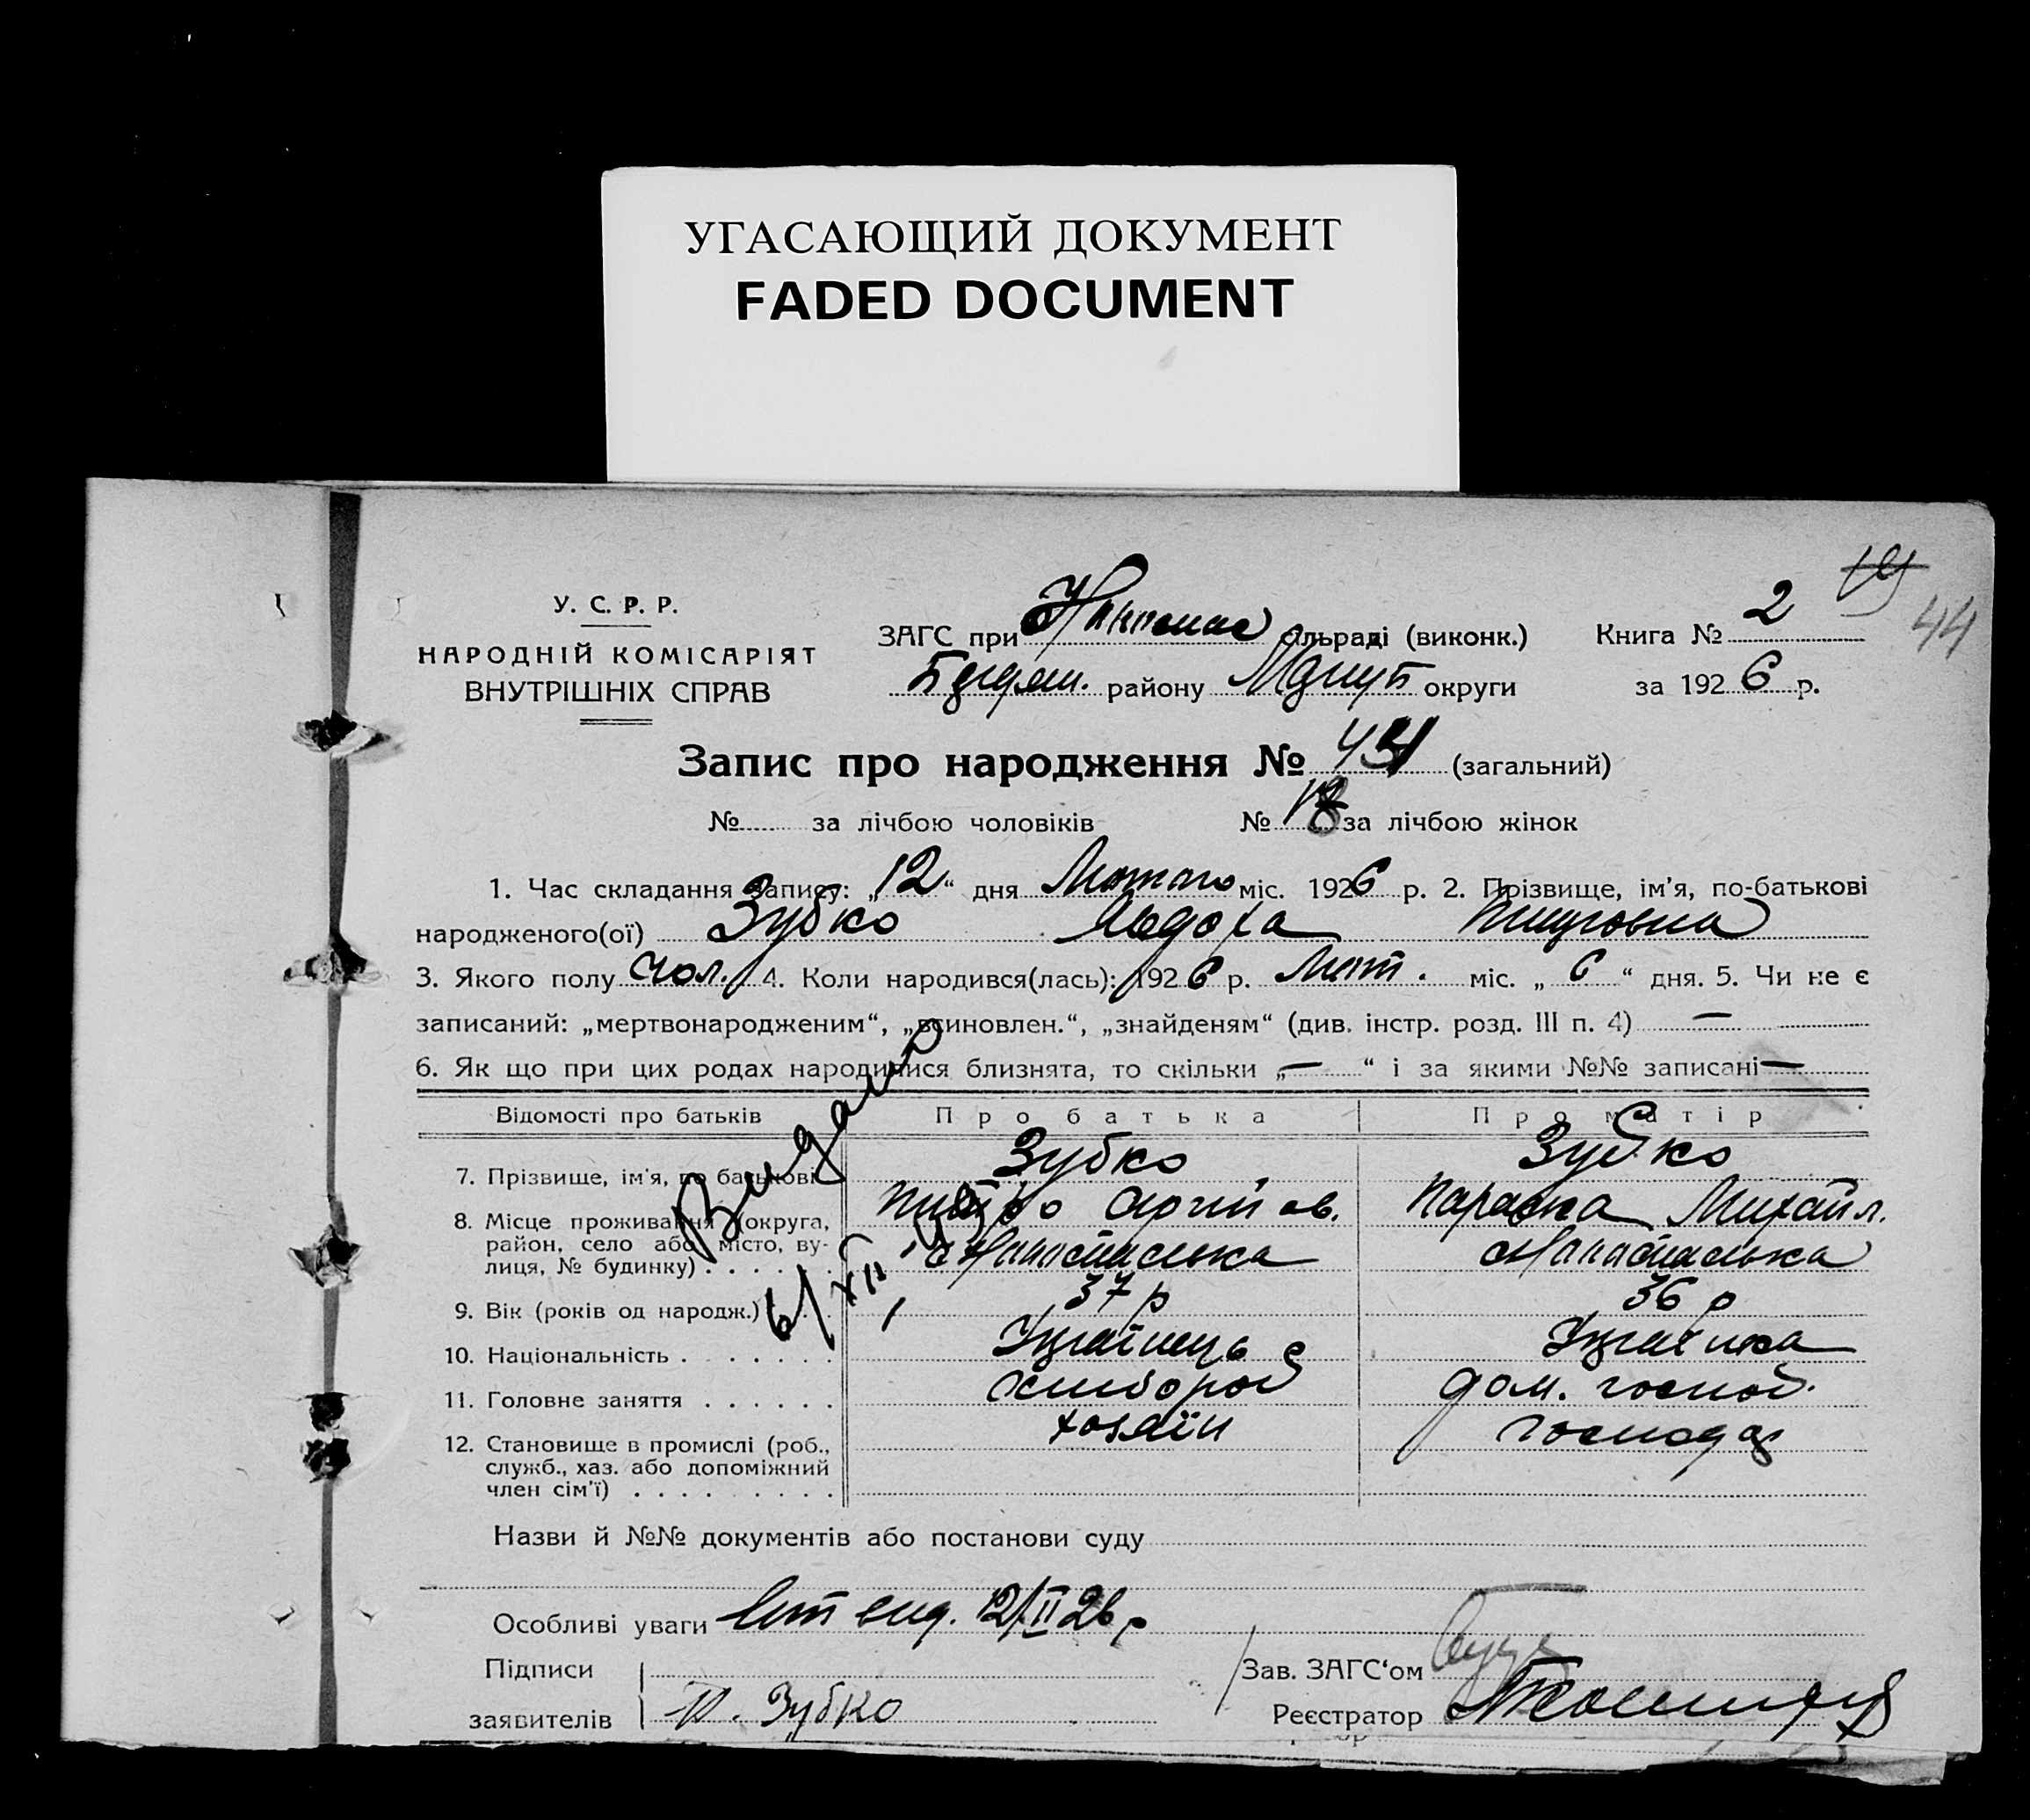 УГАСАЮЩИЙ ДОКУМЕНТ
FADED DOCUMENT
19
44
У. С. Р. Р.
НАРОДНІЙ КОМІСАРІЯТ
ВНУТРІШНІХ СПРАВ
ЗАГС при сільраді (виконк.)
району округи
Книга № 2
за 1926 р.
Запис про народження № (загальний)
№ за лічбою чоловіків № 18 за лічбою жінок
1. Час складання запису: „12“ дня Лютого міс. 1926 р. 2. Прізвище, ім'я, по-батькові
народженого(ої) Зубко Явдоха
3. Якого полу чол. 4. Коли народився(лась): 1926 р. Лют. міс. „6“ дня. 5. Чи не є
записаний: „мертвонародженим“, „всиновлен.“, „знайденям“ (див. інстр. розд. III п. 4) —
6. Як що при цих родах народилися близнята, то скільки „—“ і за якими №№ записані —
Відомості про батьків Про батька Про матір
7. Прізвище, ім'я, по батькові Зубко Зубко
Параска Михайл.
8. Місце проживання (округа,
район, село або місто, ву-
лиця, № будинку)
9. Вік (років од народж.) 37 р 36 р
10. Національність Українець Українка
11. Головне заняття Хлібороб дом. господ.
12. Становище в промислі (роб.,
служб., хаз. або допоміжний
член сім'ї) хозяїн господар
Видано
6/XII
Назви й №№ документів або постанови суду
Особливі уваги 12/II 26 р
Підписи
заявителів П. Зубко
Зав. ЗАГС'ом
Реєстратор